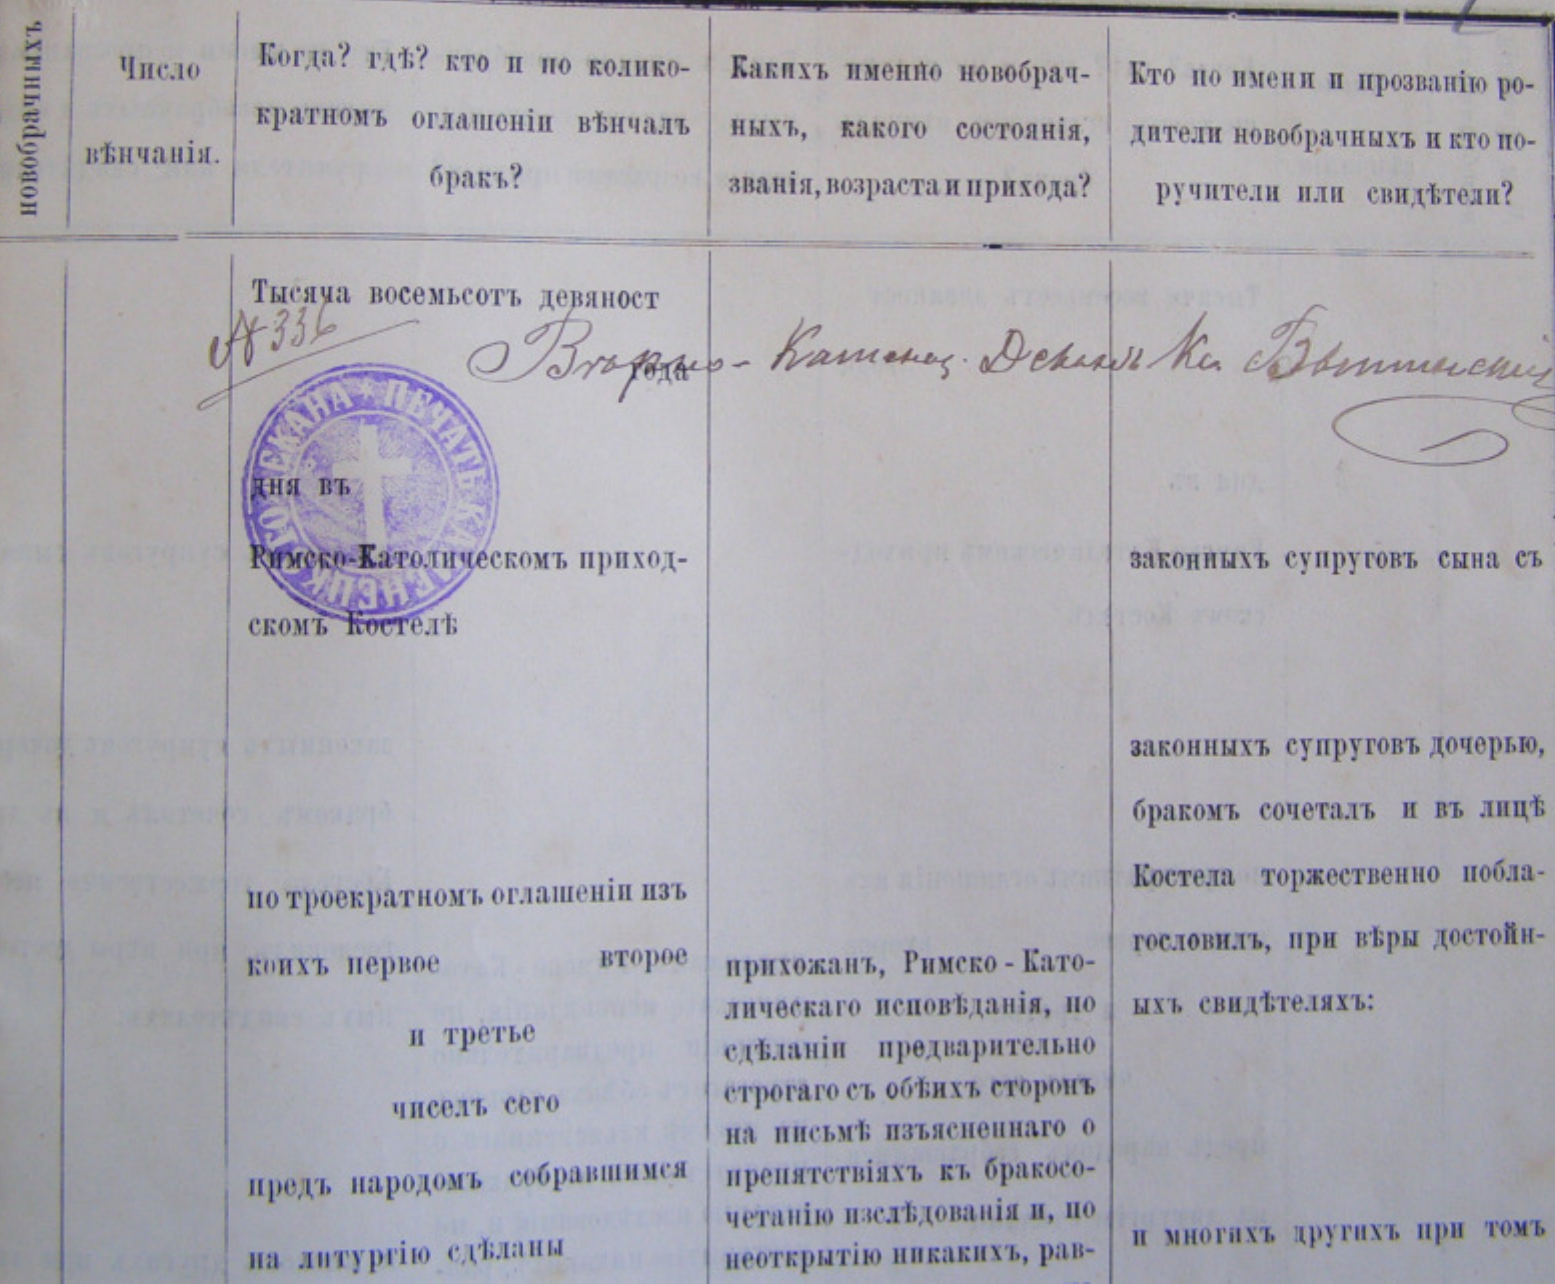 новобрачныхъ
Число
вѣнчанія.
Когда? гдѣ? кто и по колико-
кратномъ оглашеніи вѣнчалъ
бракъ?
Какихъ именно новобрач-
ныхъ, какого состоянія,
званія, возраста и прихода?
Кто по имени и прозванію ро-
дители новобрачныхъ и кто по-
ручители или свидѣтели?
Тысяча восемьсотъ девяност
№ 336
года
дня въ
Римско-Католическомъ приход-
скомъ Костелѣ
по троекратномъ оглашеніи изъ
коихъ первое второе
и третье
чиселъ сего
предъ народомъ собравшимся
на литургію сдѣланы
прихожанъ, Римско-Като-
лическаго исповѣданія, по
сдѣланіи предварительно
строгаго съ обѣихъ сторонъ
на письмѣ изъясненнаго о
препятствіяхъ къ бракосо-
четанію изслѣдованія и, по
неоткрытію никакихъ, рав-
законныхъ супруговъ сына съ
законныхъ супруговъ дочерью,
бракомъ сочеталъ и въ лицѣ
Костела торжественно побла-
гословилъ, при вѣры достойн-
ыхъ свидѣтеляхъ:
и многихъ другихъ при томъ